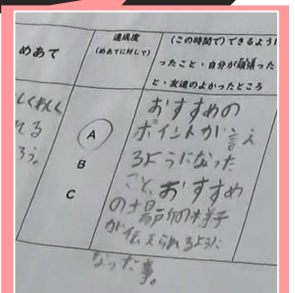 めあて
達成度
(めあてに対して)
(この時間で)できるように
ったこと・自分が頑張った
と・友達のよかったところ
しくわんく
れる
ろう。
A
B
C
おすすめの
ポイントが言え
るようになった
こと、おすすめ
の場面の様子
が伝えられるように
なった事。